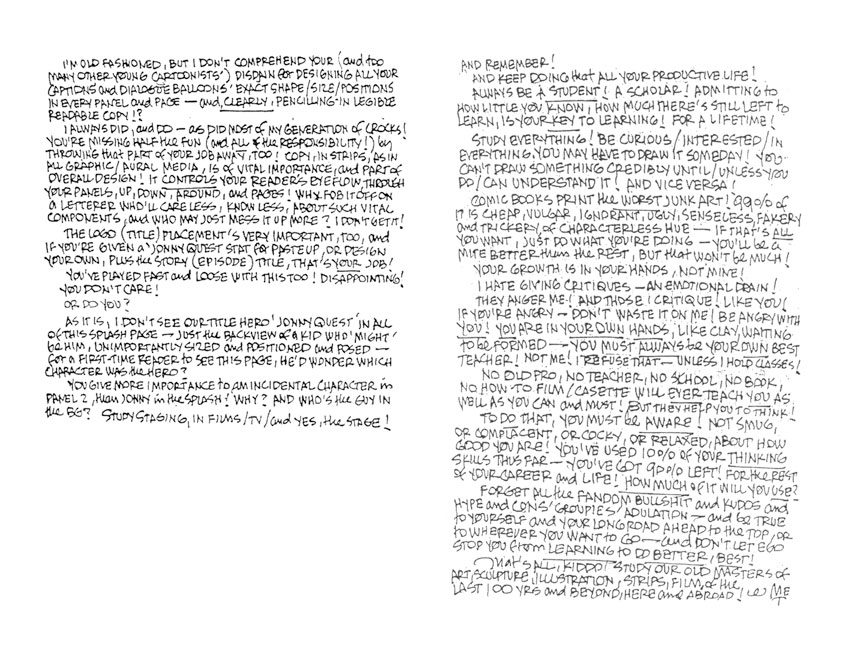 I'M OLD FASHIONED, BUT I DON'T COMPREHEND YOUR (and too
MANY OTHER YOUNG CARTOONISTS') DISDAIN for DESIGNING ALL YOUR
CAPTIONS and DIALOGUE BALLOONS' EXACT SHAPE/SIZE/POSITIONS
IN EVERY PANEL and PAGE — and, CLEARLY, PENCILLING IN LEGIBLE
READABLE COPY!?
I ALWAYS DID, and DO — AS DID MOST of MY GENERATION of CROCKS!
YOU'RE MISSING HALF the FUN (and ALL of the RESPONSIBILITY!) by
THROWING that PART OF YOUR JOB AWAY, TOO! COPY, IN STRIPS, AS IN
ALL GRAPHIC/AURAL MEDIA, IS of VITAL IMPORTANCE, and PART OF
OVERALL DESIGN! IT CONTROLS YOUR READER'S EYE FLOW, THROUGH
YOUR PANELS, UP, DOWN, AROUND, and PAGES! WHY FOB IT OFF ON
A LETTERER WHO'LL CARE LESS, KNOW LESS, ABOUT SUCH VITAL
COMPONENTS, and WHO MAY JUST MESS IT UP MORE? I DON'T GET IT!
THE LOGO (TITLE) PLACEMENT'S VERY IMPORTANT, TOO, and
IF YOU'RE GIVEN A 'JONNY QUEST' STAT for PASTEUP, OR DESIGN
YOUR OWN, PLUS the STORY (EPISODE) TITLE, THAT'S YOUR JOB!
YOU'VE PLAYED FAST and LOOSE WITH THIS TOO! DISAPPOINTING!
YOU DON'T CARE!
OR DO YOU?
AS IT IS, I DON'T SEE OUR TITLE HERO 'JONNY QUEST' IN ALL
OF THIS SPLASH PAGE — JUST the BACKVIEW of A KID WHO 'MIGHT'
be HIM, UNIMPORTANTLY SIZED and POSITIONED and POSED —
for A FIRST-TIME READER to SEE THIS PAGE, HE'D WONDER WHICH
CHARACTER WAS the HERO?
YOU GIVE MORE IMPORTANCE to AN INCIDENTAL CHARACTER in
PANEL 2, than JONNY in the SPLASH! WHY? AND WHO'S the GUY IN
the BG? STUDY STAGING, IN FILMS/TV/and YES, the STAGE!
AND REMEMBER!
AND KEEP DOING that ALL YOUR PRODUCTIVE LIFE!
ALWAYS BE A STUDENT! A SCHOLAR! ADMITTING to
HOW LITTLE YOU KNOW, HOW MUCH THERE'S STILL LEFT to
LEARN, IS YOUR KEY TO LEARNING! FOR A LIFETIME!
STUDY EVERYTHING! BE CURIOUS/INTERESTED/IN
EVERYTHING. YOU MAY HAVE TO DRAW IT SOMEDAY! YOU
CAN'T DRAW SOMETHING CREDIBLY UNTIL/UNLESS YOU
DO/CAN UNDERSTAND IT! AND VICE VERSA!
COMIC BOOKS PRINT the WORST JUNK ART! 99% of
IT IS CHEAP, VULGAR, IGNORANT, UGLY, SENSELESS, FAKERY
and TRICKERY, of CHARACTERLESS HUE — IF THAT'S ALL
YOU WANT, JUST DO WHAT YOU'RE DOING — YOU'LL be A
MITE BETTER than the REST, BUT THAT WON'T BE MUCH!
YOUR GROWTH IS IN YOUR HANDS, NOT MINE!
I HATE GIVING CRITIQUES — AN EMOTIONAL DRAIN!
THEY ANGER ME! AND THOSE I CRITIQUE! LIKE YOU!
IF YOU'RE ANGRY — DON'T WASTE IT ON ME! BE ANGRY WITH
YOU! YOU ARE IN YOUR OWN HANDS, LIKE CLAY, WAITING
to be FORMED — YOU MUST ALWAYS be YOUR OWN BEST
TEACHER! NOT ME! I REFUSE THAT — UNLESS I HOLD CLASSES!
NO OLD PRO, NO TEACHER, NO SCHOOL, NO BOOK,
NO HOW TO FILM/CASETTE WILL EVER TEACH YOU AS
WELL AS YOU CAN and MUST! BUT THEY HELP YOU TO THINK!
TO DO THAT, YOU MUST BE AWARE! NOT SMUG,
OR COMPLACENT, OR COCKY, OR RELAXED, ABOUT HOW
GOOD YOU ARE! YOU'VE USED 10% OF YOUR THINKING
SKILLS THUS FAR — YOU'VE GOT 90% LEFT! FOR the REST
of YOUR CAREER and LIFE! HOW MUCH of IT WILL YOU USE?
FORGET ALL the FANDOM BULLSHIT and KUDOS and
HYPE and CONS' GROUPIES' ADULATION — and BE TRUE
to YOURSELF and YOUR LONG ROAD AHEAD to the TOP, OR
to WHEREVER YOU WANT to GO — and DON'T LET EGO
STOP YOU from LEARNING to DO BETTER, BEST!
THAT'S ALL, KIDDO! STUDY OUR OLD MASTERS of
ART, SCULPTURE, ILLUSTRATION, STRIPS, FILM, of the
LAST 100 YRS and BEYOND, HERE and ABROAD!